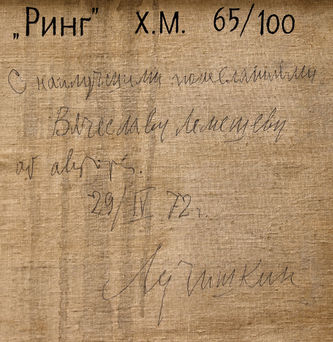 „Ринг" Х.М. 65/100
С наилучшими пожеланиями
Вячеславу Лемешеву
от автора.
29/IV 72 г.
Лучишкин